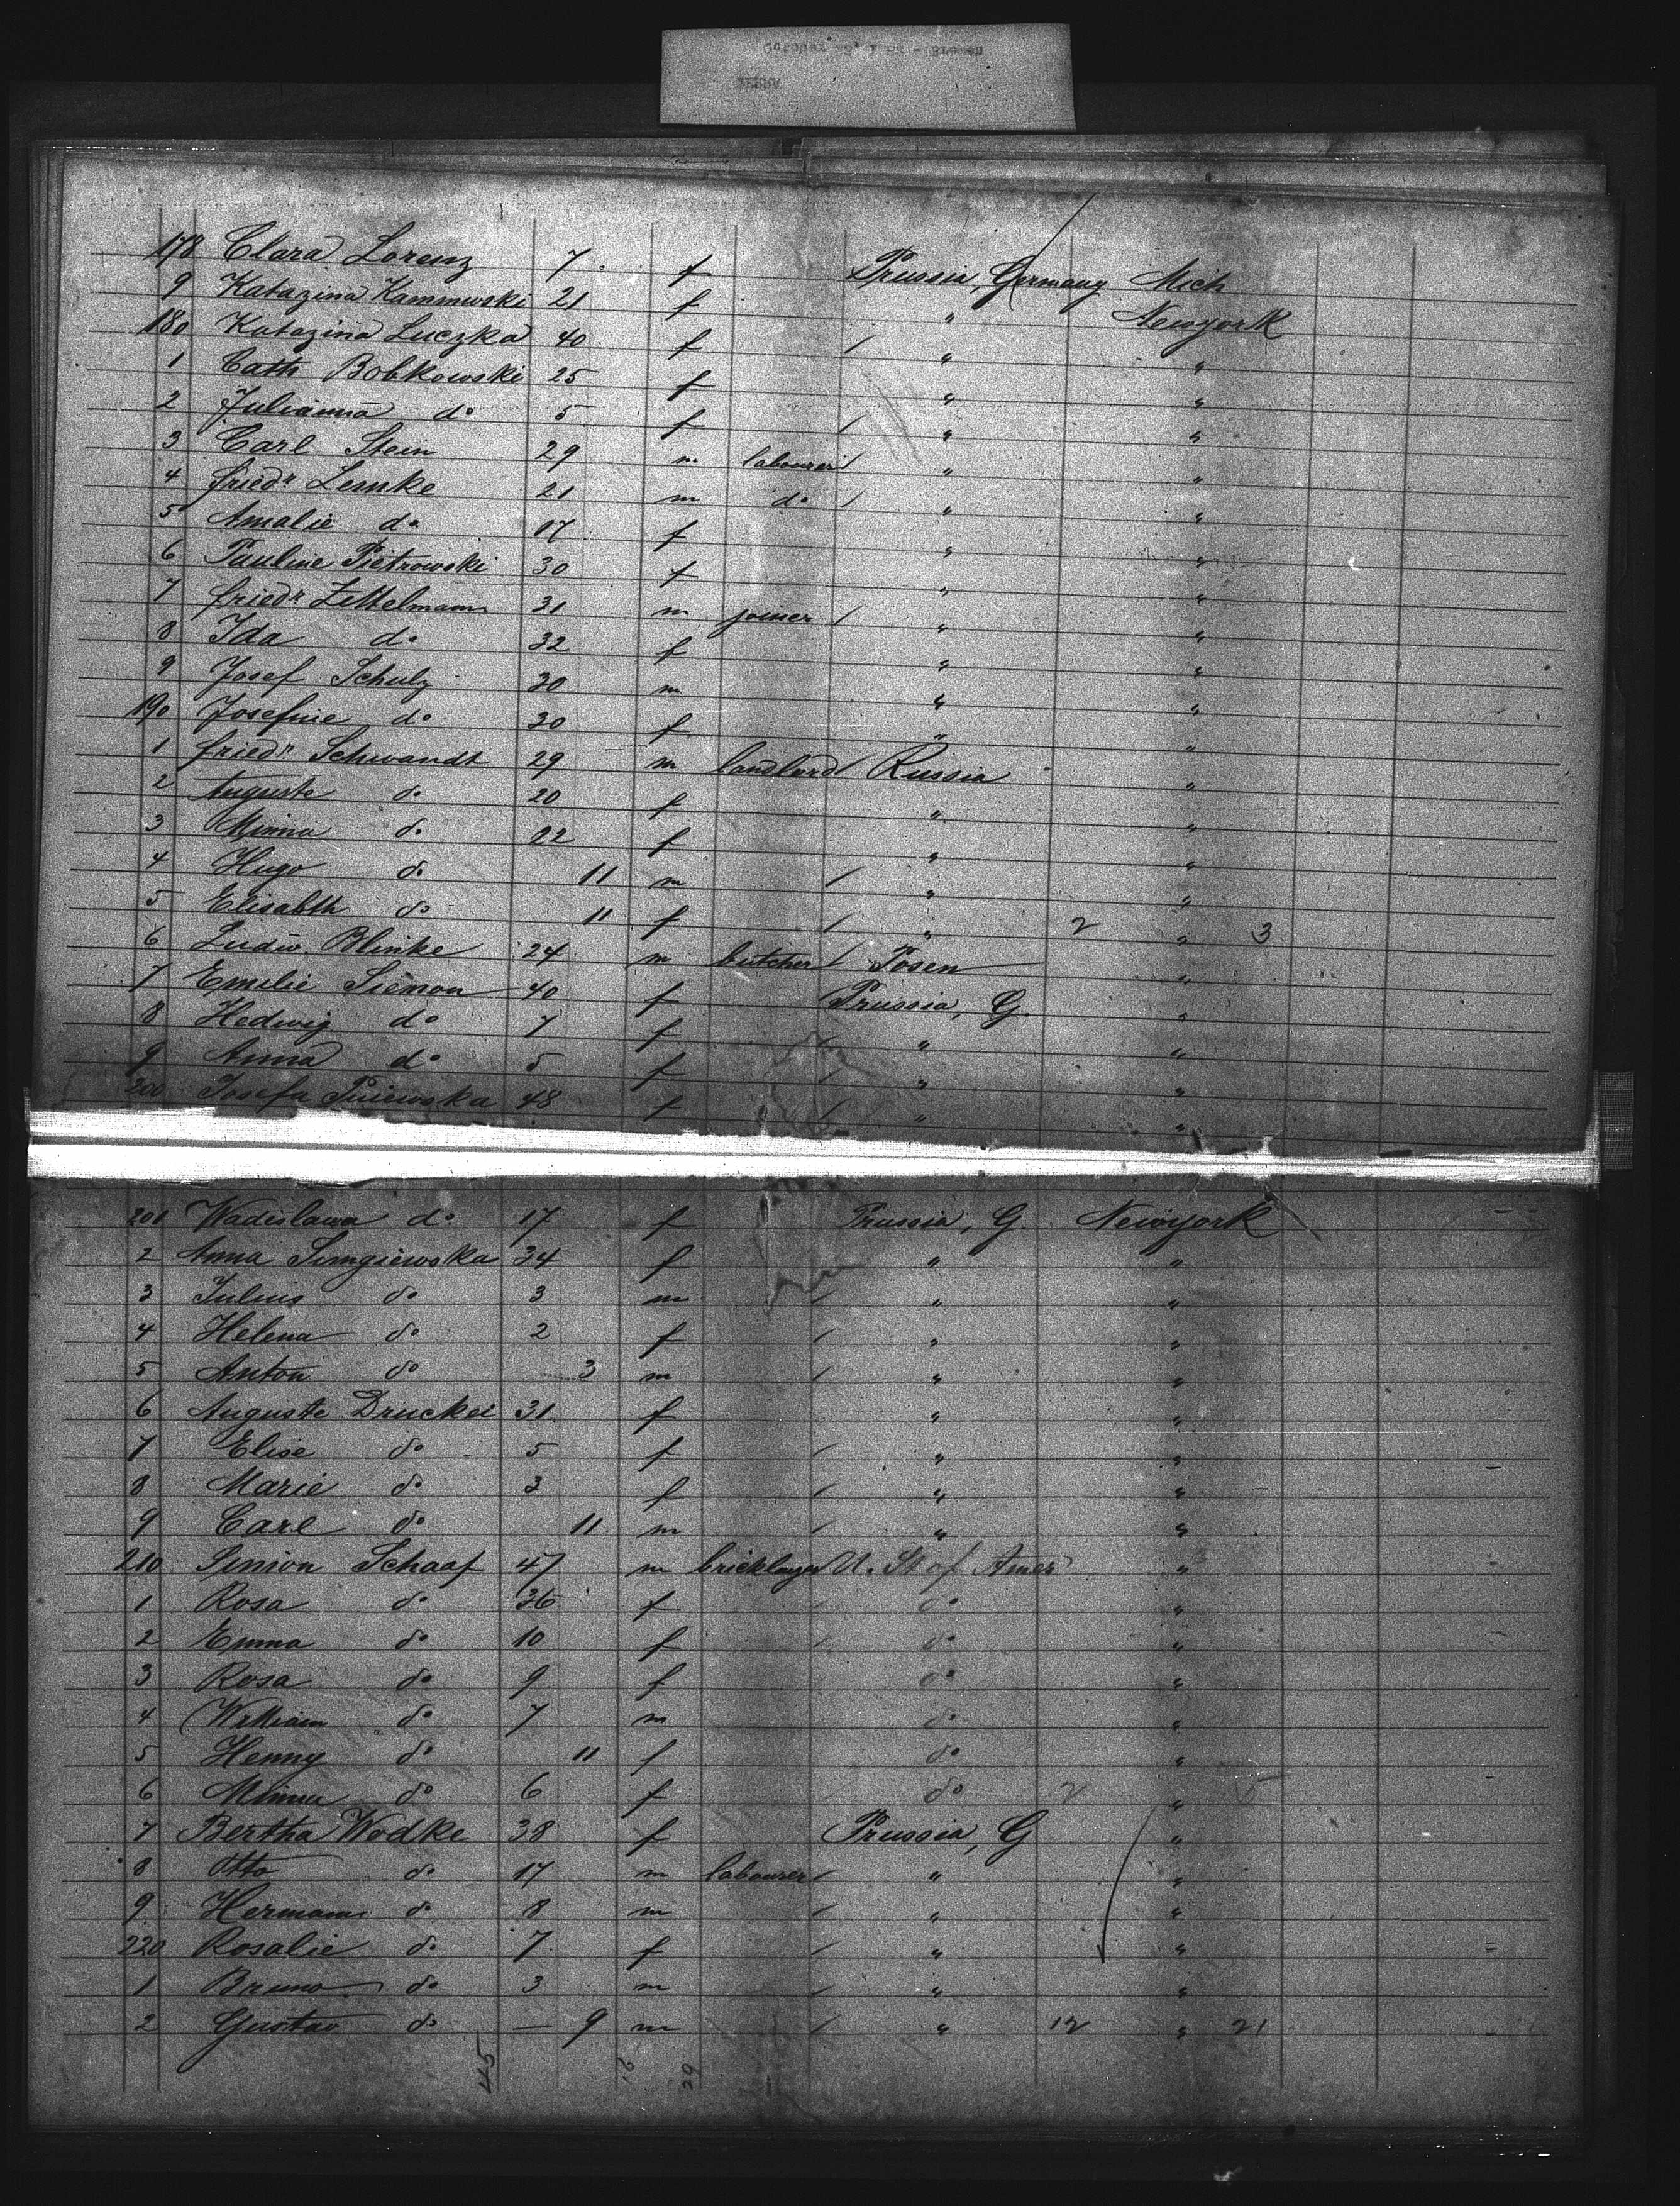 178 Clara Lorenz 7 f Prussia, Germany Mich
9 Katazina Kaminwski 21 f " Newyork
180 Katazina Luczka 40 f " "
1 Cath Bobkowski 25 f " "
2 Julianna do 5 f " "
3 Carl Stein 29 m labourer " "
4 Friedr Lemke 21 m do " "
5 Amalie do 17 f " "
6 Pauline Pietrowski 30 f " "
7 Friedr Zettelmann 31 m joiner " "
8 Ida do 32 f " "
9 Josef Schulz 30 m " "
190 Josefine do 30 f " "
1 Friedr. Schwandt 29 m landlord Russia "
2 Auguste do 20 f " "
3 Minna do 22 f " "
4 Hugo do 11 m " "
5 Elisabth do 11 f " 2 " 3
6 Ludw. Blinke 24 m butcher Posen "
7 Emilie Siemon 40 f Prussia, G. "
8 Hedwig do 7 f " "
9 Anna do 5 f " "
200 Josefa Pniewska 48 f " "
201 Wadislawa do 17 f Prussia, G. Newyork
2 Anna Sumgiewska 34 f " "
3 Julius do 3 m " "
4 Helena do 2 f " "
5 Anton do 3 m " "
6 Auguste Drucker 31 f " "
7 Elise do 5 f " "
8 Marie do 3 f " "
9 Carl do 11 m " "
210 Simon Schaaf 47 m bricklayer U. St of Amer "
1 Rosa do 36 f do "
2 Emma do 10 f do "
3 Rosa do 9 f do "
4 William do 7 m do "
5 Henny do 11 f do "
6 Minna do 6 f do 2 " 5
7 Bertha Wodke 38 f Prussia, G "
8 Otto do 17 m labourer " "
9 Hermann do 8 m " "
220 Rosalie do 7 f " "
1 Bruno do 3 m " "
2 Gustav do — 9 m " 12 " 21
45 16 29